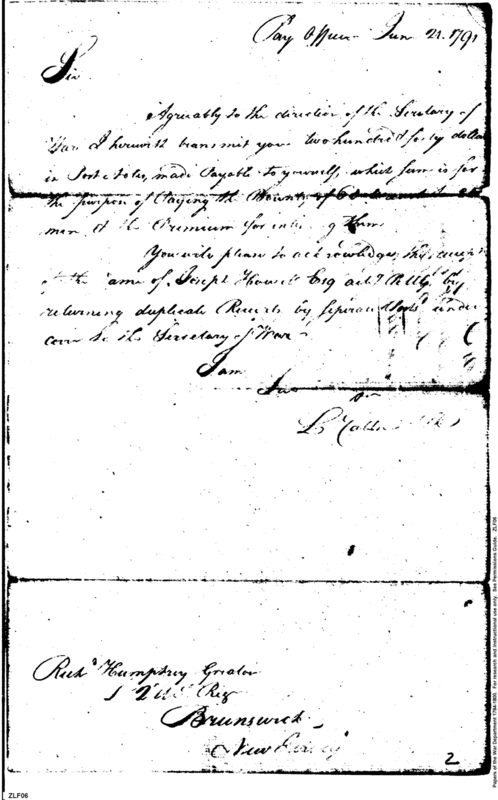 Pay Office June 21. 1791
Sir
Agreeably to the direction of the Secretary of
War I herewith transmit you two hundred forty dollars
in Post Notes, made Payable to yourself, which sum is for
the purpose of Paying the Bounty of 6 dollars to
men & the Premium for them
You will please to acknowledge the receipt
of the same of Joseph Howell Esq act.g by
returning duplicate Receipts by separate Posts under
cover to the Secretary of War
I am
Sir
Rich.d Humphrey Greaton
2d Reg
Brunswick
New Jersey
2
ZLF06
Papers of the War Department 1784-1800. For research and instructional use only. See Permissions Guide. ZLF06